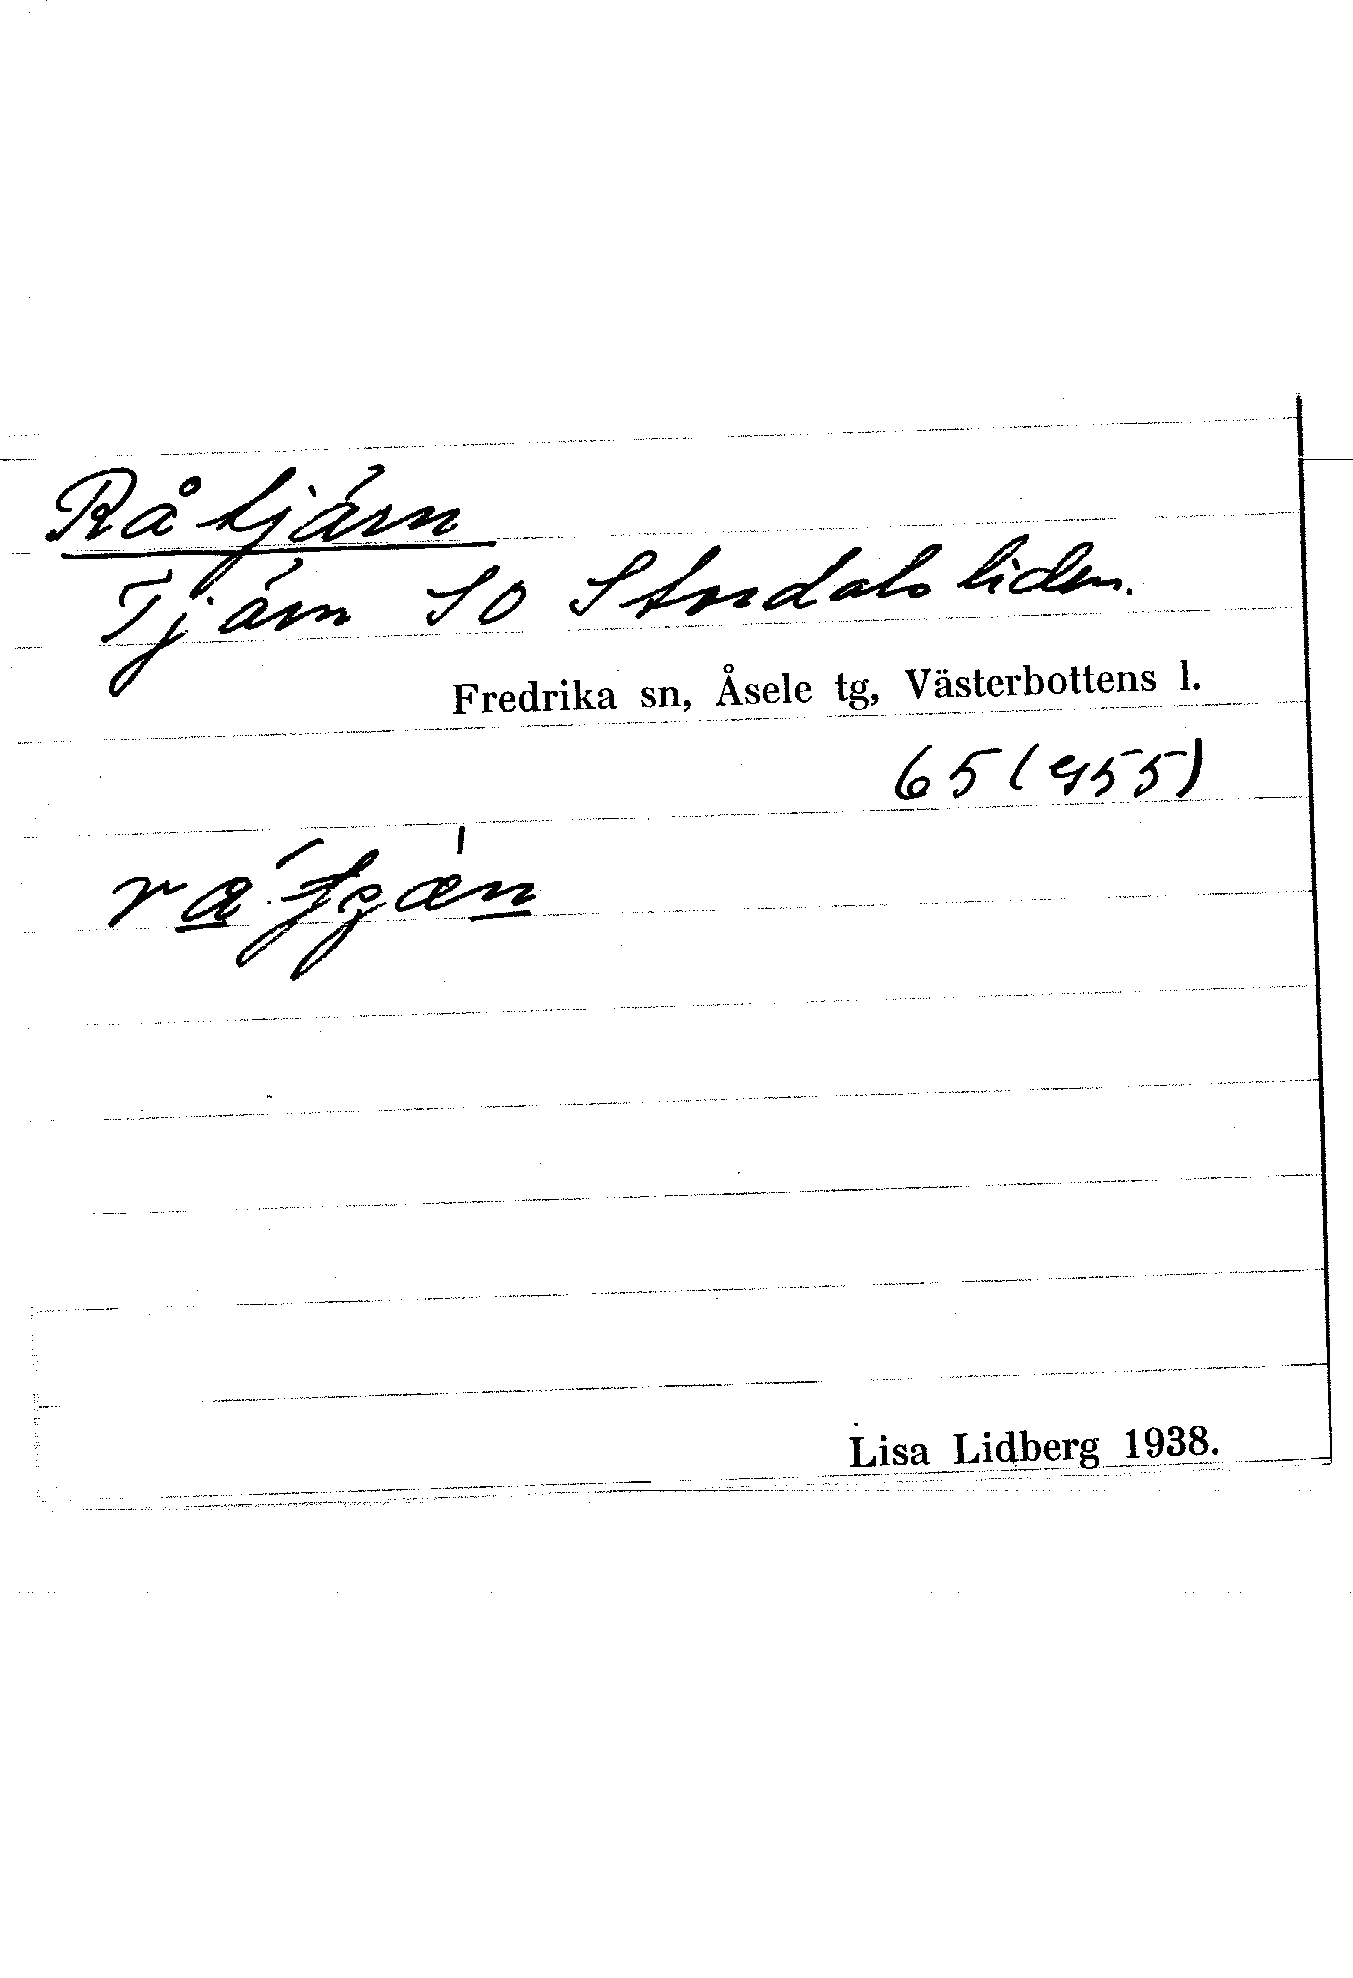 Råtjärn
Tjärn SO Stordalsliden.
Fredrika sn, Åsele tg, Västerbottens l.
65 (955)
Lisa Lidberg 1938.